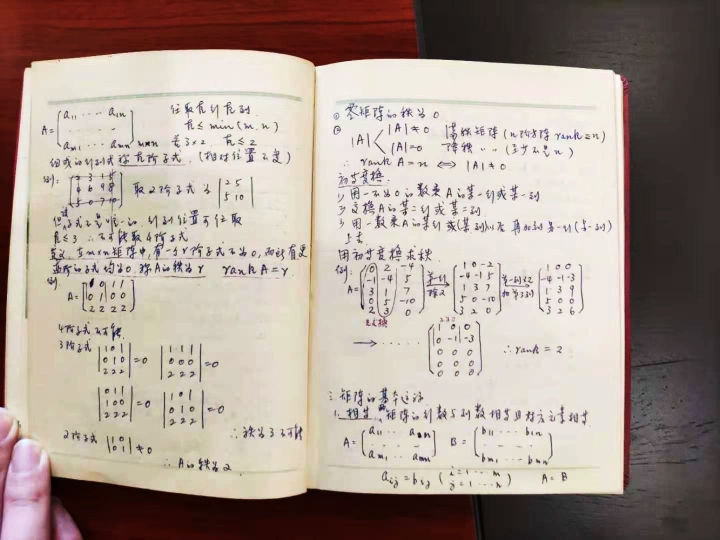 A = [a₁₁ ⋯ a₁ₙ
⋯
aₘ₁ ⋯ aₘₙ] m×n
任取k行k列
k ≤ min(m, n)
若3×2, k ≤ 2
组成的行列式称k阶子式 (相对位置不变)
例:
取2阶子式为 |2 5
5 10|
但子式不是唯一的 行列位置可任取
k ≤ 3 ∴不可能取4阶子式
定义, 在m×n矩阵中, 有一个r阶子式不为0, 而所有更
高阶的子式均为0, 称A的秩为r rank A = r
例
A = [1 0 1 1
0 1 0 0
2 2 2 2]
4阶子式不可能
3阶子式
|1 0 1
0 1 0
2 2 2| = 0
|1 1
0 0 0
2 2 2| = 0
|0 1 1
1 0 0
2 2 2| = 0
|1 0 1
0 1 0
2 2 2| = 0
∴秩为3不可能
2阶子式 |1 0
0 1| ≠ 0
∴A的秩为2
① 零矩阵的秩为0
② |A| |A| ≠ 0 满秩矩阵 (n阶方阵 rank = n)
|A| = 0 降秩 〃 〃
∴ rank A = n ⟺ |A| ≠ 0
初等变换
1) 用一不为0的数乘A的某一行或某一列
2) 交换A的某二行或某二列
3) 用一数乘A的某行(或某列)以后再加到另一行(另一列)
上去
用初等变换求秩
例:
A = [0 2 -4
-1 -4 5
3 1 7
0 5 -10
2 3 0]
第一列
换2
[1 0 -2
-4 -1 5
1 3 7
5 0 -10
3 2 0]
第一列×2
加第3列
[1 0 0
-4 -1 -3
1 3 9
5 0 0
3 2 6]
→ ⋯⋯ [1 0 0
0 -1 -3
0 0 0
0 0 0
0 0 0]
∴ rank = 2
三. 矩阵的基本运算
1. 相等, 矩阵的行数与列数相等且对应元素相等.
A = [a₁₁ ⋯ a₁ₙ
⋯
aₘ₁ ⋯ aₘₙ] B = [b₁₁ ⋯ b₁ₙ
⋯
bₘ₁ ⋯ bₘₙ]
aᵢⱼ = bᵢⱼ (i = 1 ⋯ m
j = 1 ⋯ n) A = B